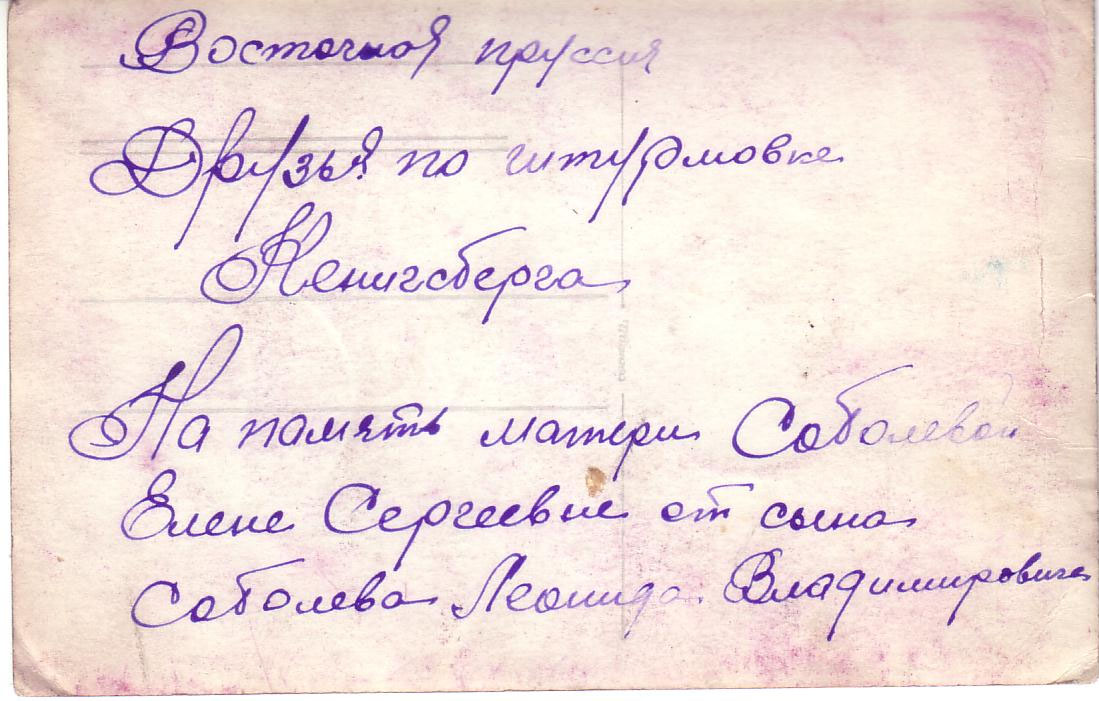 Восточная пруссия
Друзья по штурмовке
Кенигсберга
На память матери Соболевой
Елене Сергеевне от сына
Соболева Леонида Владимировича